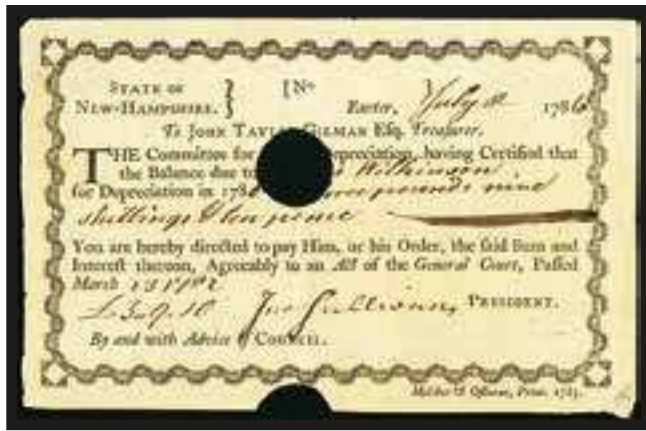 STATE OF NEW-HAMPSHIRE. } [No ]
Exeter, July 1786
To JOHN TAYLOR GILMAN Esq. Treasurer.
THE Committee for Depreciation, having Certified that
the Balance due to Wilkinson
for Depreciation in 178 three pounds nine
shillings & ten pence
You are hereby directed to pay Him, or his Order, the said Sum and
Interest thereon, Agreeably to an Act of the General Court, Passed
March 1782
£3..9..10 Jno Sullivan, PRESIDENT.
By and with Advice of COUNCIL.
Melcher & Osborne, Print. 1785.